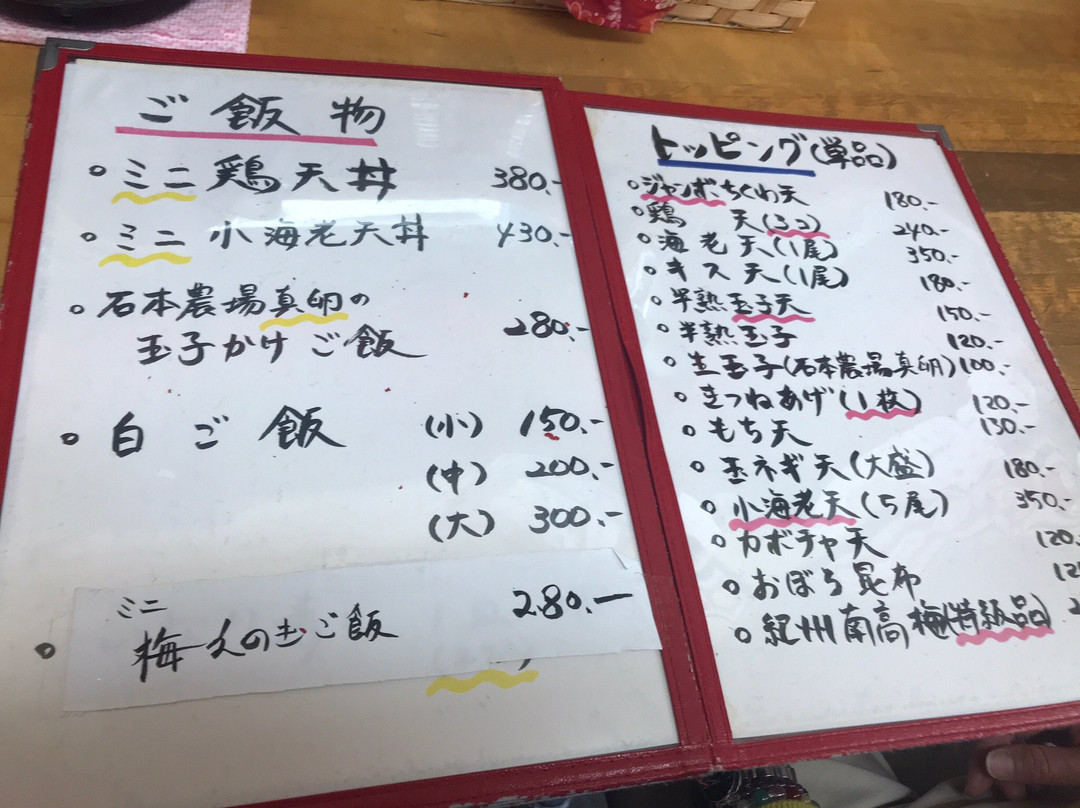 ご飯物
ミニ鶏天丼 380.-
ミニ小海老天丼 430.-
石本農場真卵の
玉子かけご飯 280.-
白ご飯 (小) 150.-
(中) 200.-
(大) 300.-
ミニ
梅ご飯 280.-
トッピング(単品)
ジャンボちくわ天 180.-
鶏天(3コ) 240.-
海老天(1尾) 350.-
キス天(1尾) 180.-
半熟玉子天 150.-
半熟玉子 120.-
生玉子(石本農場真卵) 100.-
きつねあげ(1枚) 120.-
もち天 130.-
玉ネギ天(大盛) 180.-
小海老天(5尾) 350.-
カボチャ天 120.
おぼろ昆布 12
紀州南高梅(特級品) 2